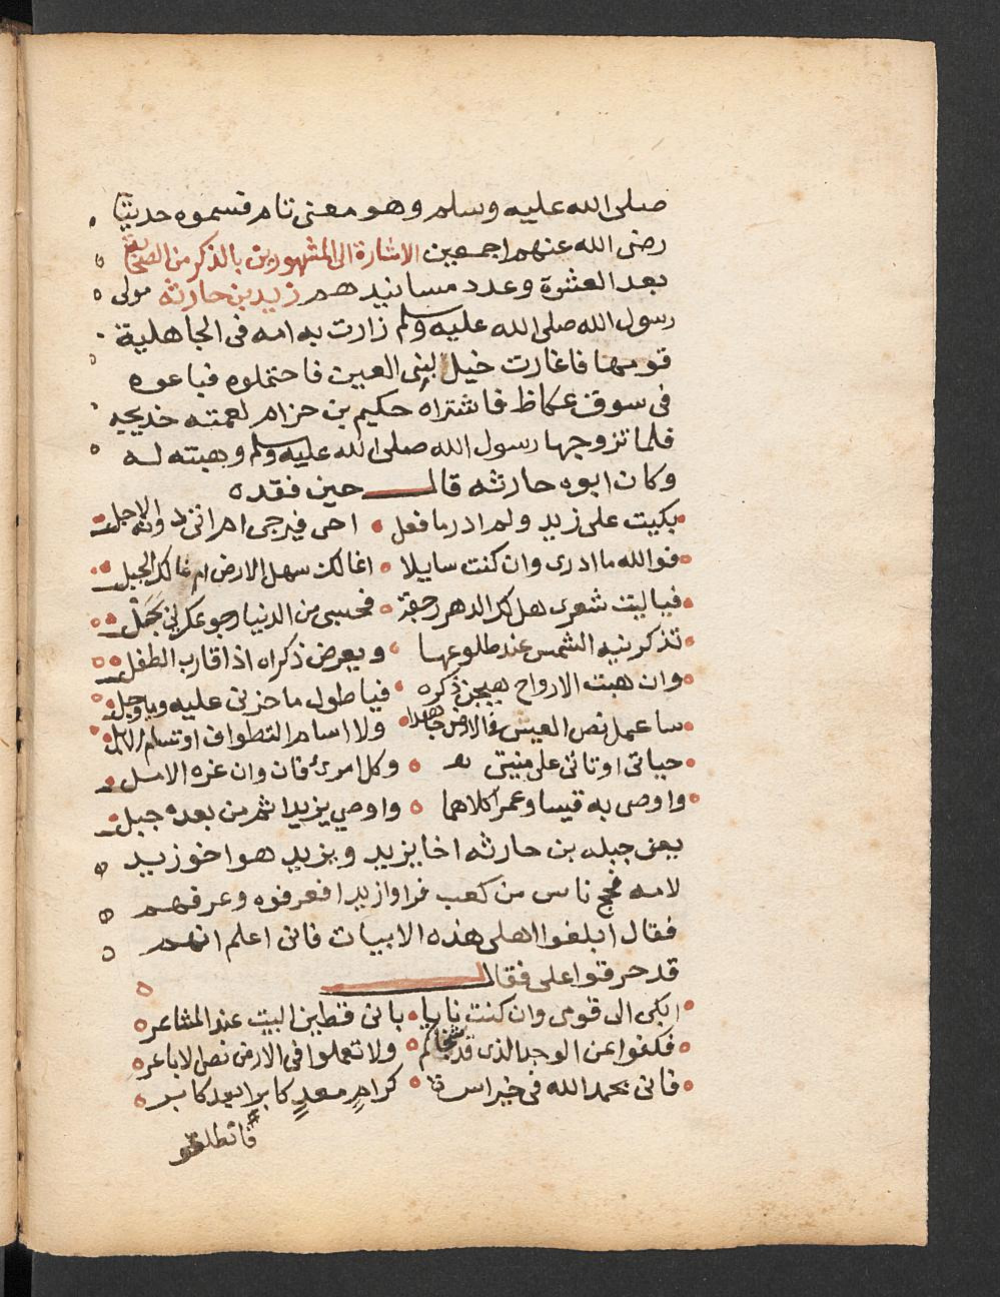 صلى الله عليه وسلم وهو معنى تام فسموه حديثا
رضى الله عنهم اجمعين الاشارة الى المشهورين بالذكر من الصحابة
بعد العشرة وعدد مسانيدهم زيد بن حارثه مولى
رسول الله صلى الله عليه وسلم زارت به امه فى الجاهلية
قومها فاغارت خيل لبنى العين فاحتملوه فباعوه
فى سوق عكاظ فاشتراه حكيم بن حزام لعمته خديجه
فلما تزوجها رسول الله صلى الله عليه وسلم وهبته له
وكان ابوه حارثه قال حين فقده
بكيت على زيد ولم ادر ما فعل احى فيرجى ام اتى دونه الاجل
فوالله ما ادرى وان كنت سايلا اغالك سهل الارض ام غالك الجبل
فياليت شعرى هل لك الدهر رجعة فحسبى من الدنيا رجوعك لى بجل
تذكرنيه الشمس عند طلوعها ويعرض ذكراه اذا قارب الطفل
وان هبت الارواح هيجن ذكره فيا طول ما حزنى عليه ويا وجل
ساعمل نص العيس فى الارض جاهدا ولا اسام التطواف او تسام الابل
حياتى او تاتى على منيتى وكل امرئ فان وان غره الامل
واوصى به قيسا وعمرا كلاهما واوصي يزيدا ثم من بعده جبل
يعنى جبله بن حارثه اخا يزيد ويزيد هو اخو زيد
لامه فحج ناس من كعب فراوا زيدا فعرفوه وعرفهم
فقال ابلغوا اهلى هذه الابيات فانى اعلم انهم
قد حرقوا على فقال
الكنى الى قومى وان كنت نايا بانى قطين البيت عند المشاعر
فكفوا من الوجد الذى قد شجاكم ولا تعملوا فى الارض نص الاباعر
فانى بحمد الله فى خير اسرة كرام معد كابرا بعد كابر
فانطلق